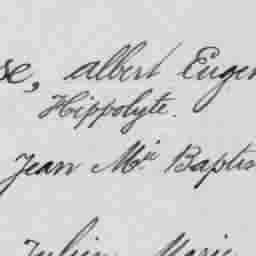 se, albert Eugen
Hippolyte.
Jean M^ie Baptis
Julien Marie